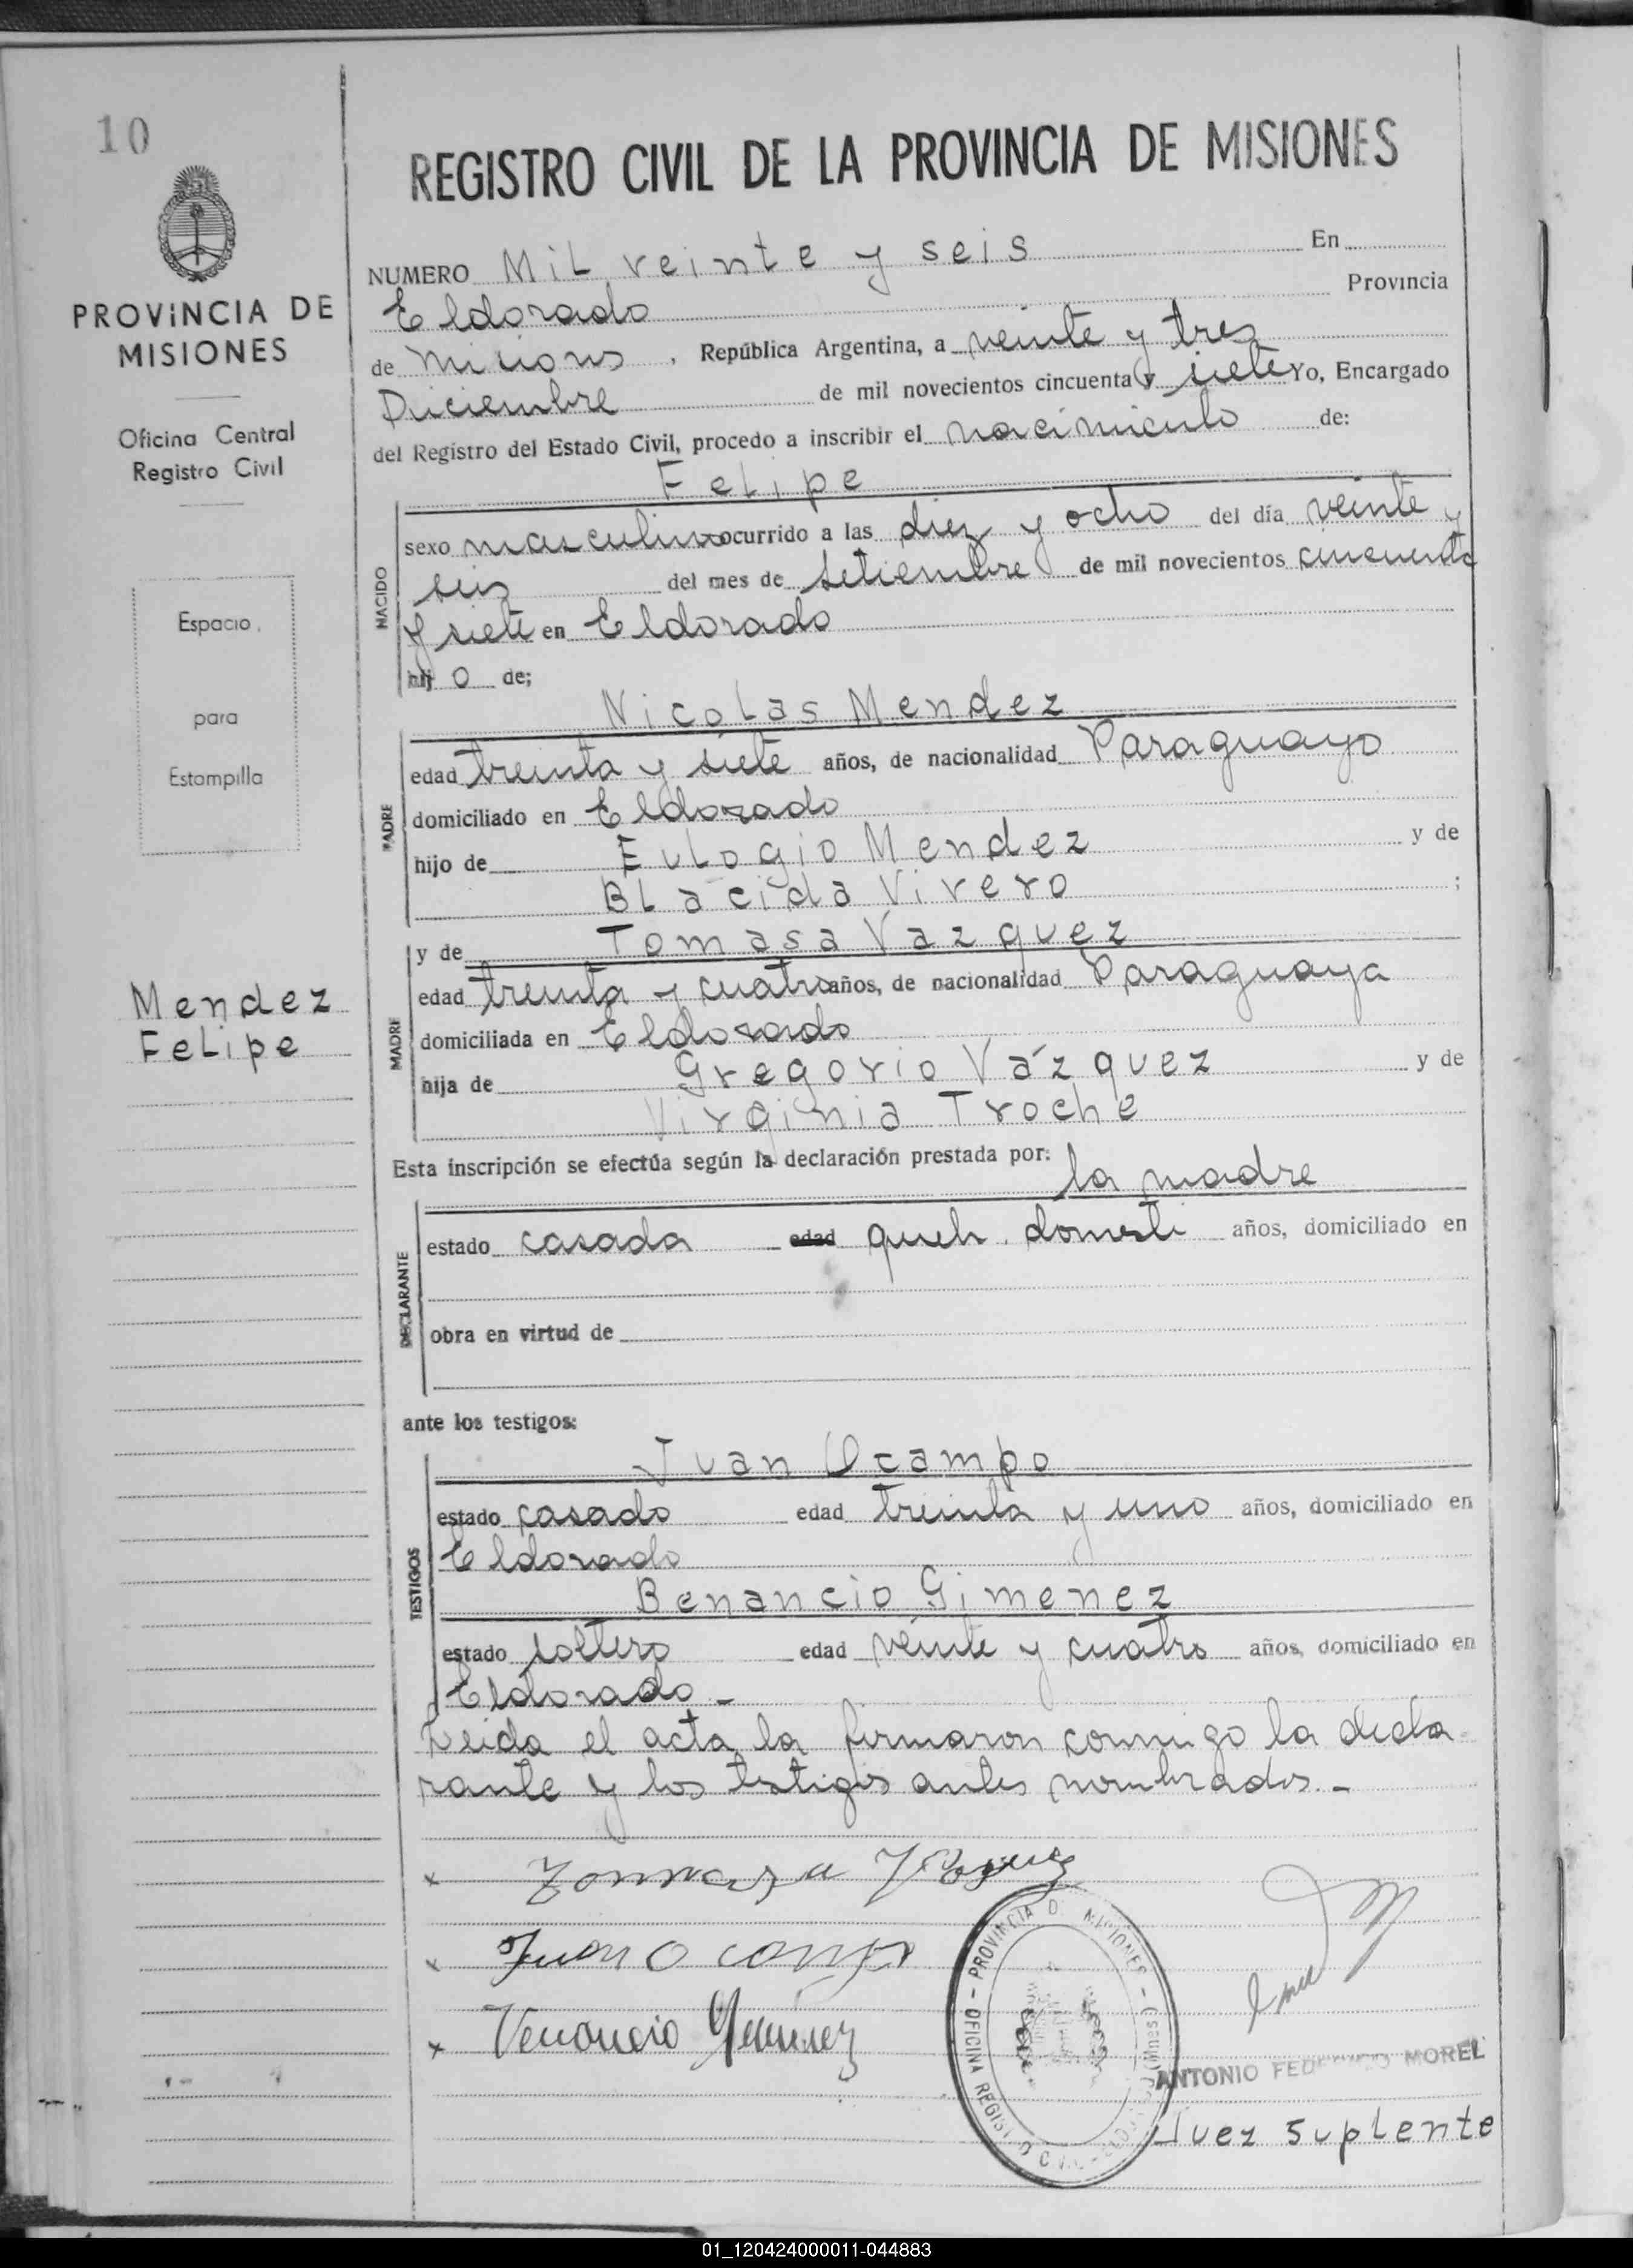 10
PROVINCIA DE
MISIONES
Oficina Central
Registro Civil
Espacio
para
Estampilla
Mendez
Felipe
REGISTRO CIVIL DE LA PROVINCIA DE MISIONES
NUMERO Mil veinte y seis En
Eldorado Provincia
de Misiones, República Argentina, a veinte y tres
Diciembre de mil novecientos cincuenta y siete Yo, Encargado
del Registro del Estado Civil, procedo a inscribir el nacimiento de:
NACIDO
Felipe
sexo masculino ocurrido a las diez y ocho del día veinte y
seis del mes de setiembre de mil novecientos cincuenta
y siete en Eldorado
hijo de;
PADRE
Nicolas Mendez
edad treinta y siete años, de nacionalidad Paraguayo
domiciliado en Eldorado
hijo de Eulogio Mendez y de
Blacida Vivero ;
MADRE
y de Tomasa Vazquez
edad treinta y cuatro años, de nacionalidad Paraguaya
domiciliada en Eldorado
hija de Gregorio Vázquez y de
Virginia Troche
Esta inscripción se efectúa según la declaración prestada por:
la madre
DECLARANTE
estado casada edad queh. domesti años, domiciliado en
obra en virtud de
ante los testigos:
TESTIGOS
Juan Ocampo
estado casado edad treinta y uno años, domiciliado en
Eldorado
Benancio Gimenez
estado soltero edad veinte y cuatro años, domiciliado en
Eldorado -
Leida el acta la firmaron conmigo la decla-
rante y los testigos antes nombrados. -
x Tommasa
x Juan Ocampo
x Venancio Gimenez
OFICINA REGISTRO CIVIL - PROVINCIA DE MISIONES -
ANTONIO FEDERICO MOREL
Juez Suplente
01_120424000011-044883